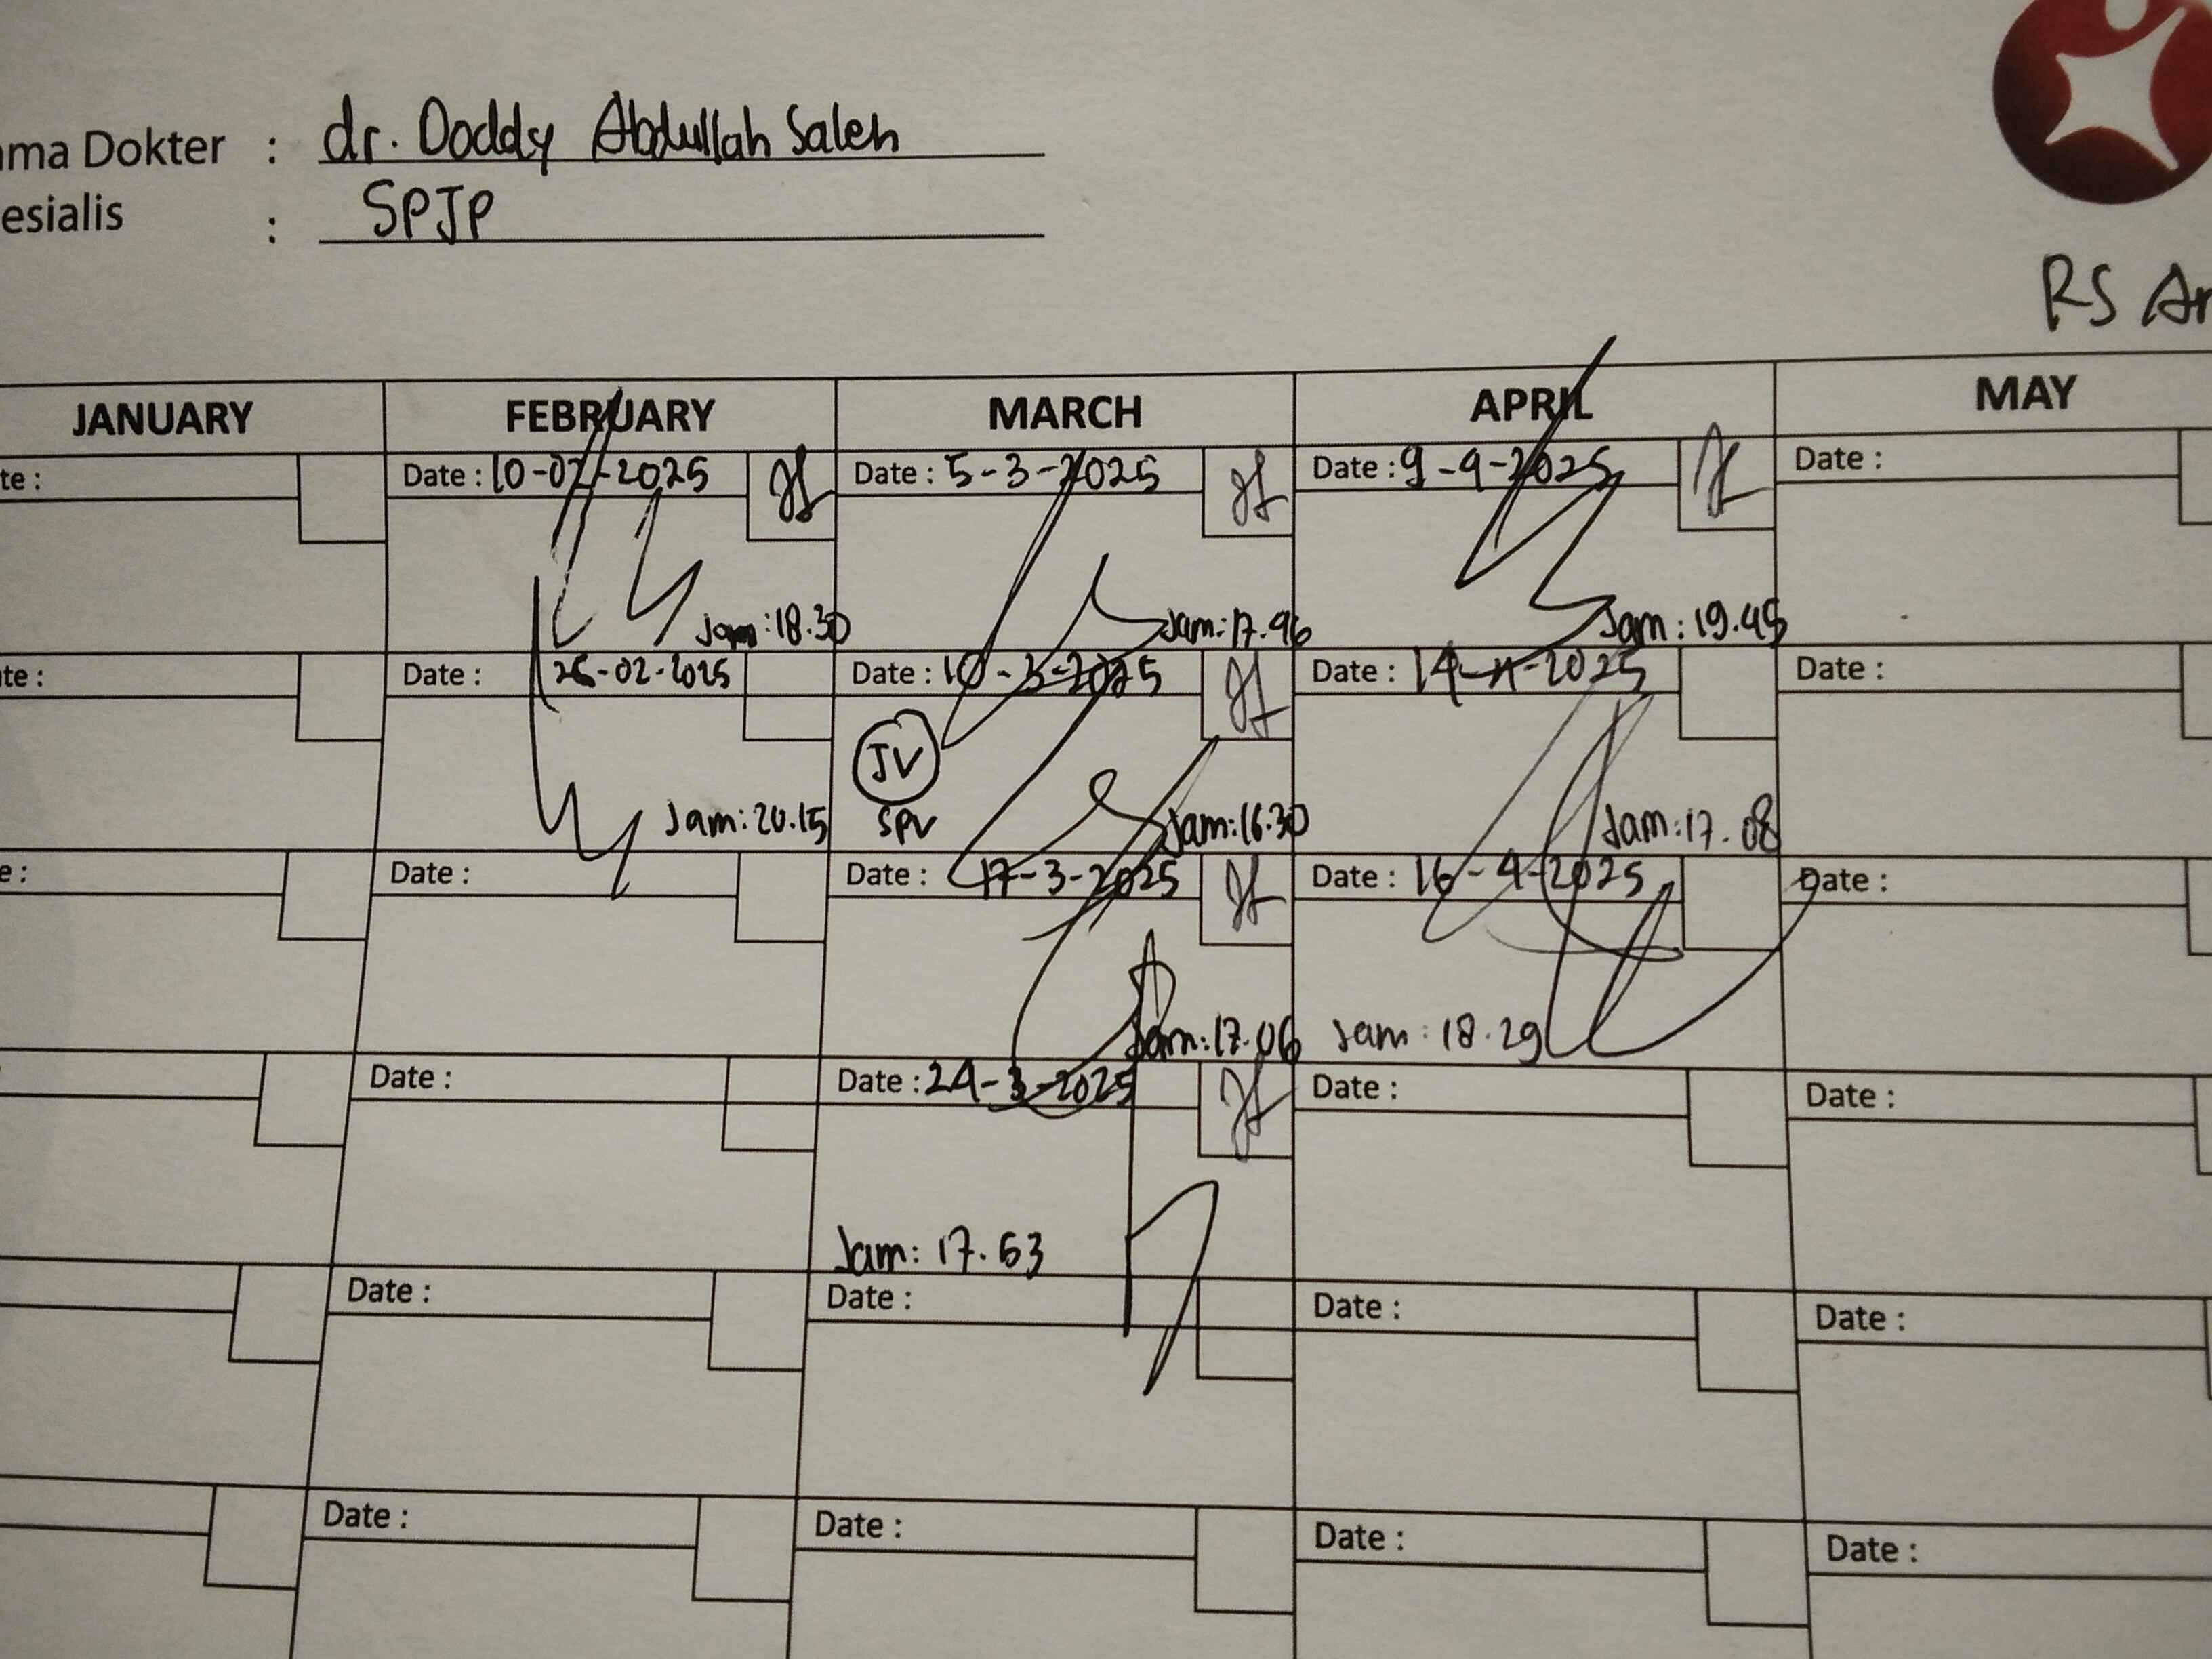 ma Dokter : dr. Doddy Abdullah Saleh
esialis : SPJP
RS Ar
JANUARY FEBRUARY MARCH APRIL MAY
te : Date : 10-02-2025 Date : 5-3-2025 Date : 9-4-2025 Date :
Jam: 18.30 Jam: 17.46 Jam: 19.45
te : Date : 26-02-2025 Date : 10-3-2025 Date : 14-4-2025 Date :
JV
Jam: 20.15 SPV Jam: 16.30 Jam: 17.08
e : Date : Date : 17-3-2025 Date : 16-4-2025 Date :
Jam: 17.06 Jam: 18.29
Date : Date : 24-3-2025 Date : Date :
Jam: 17.53
Date : Date : Date : Date :
Date : Date : Date : Date :